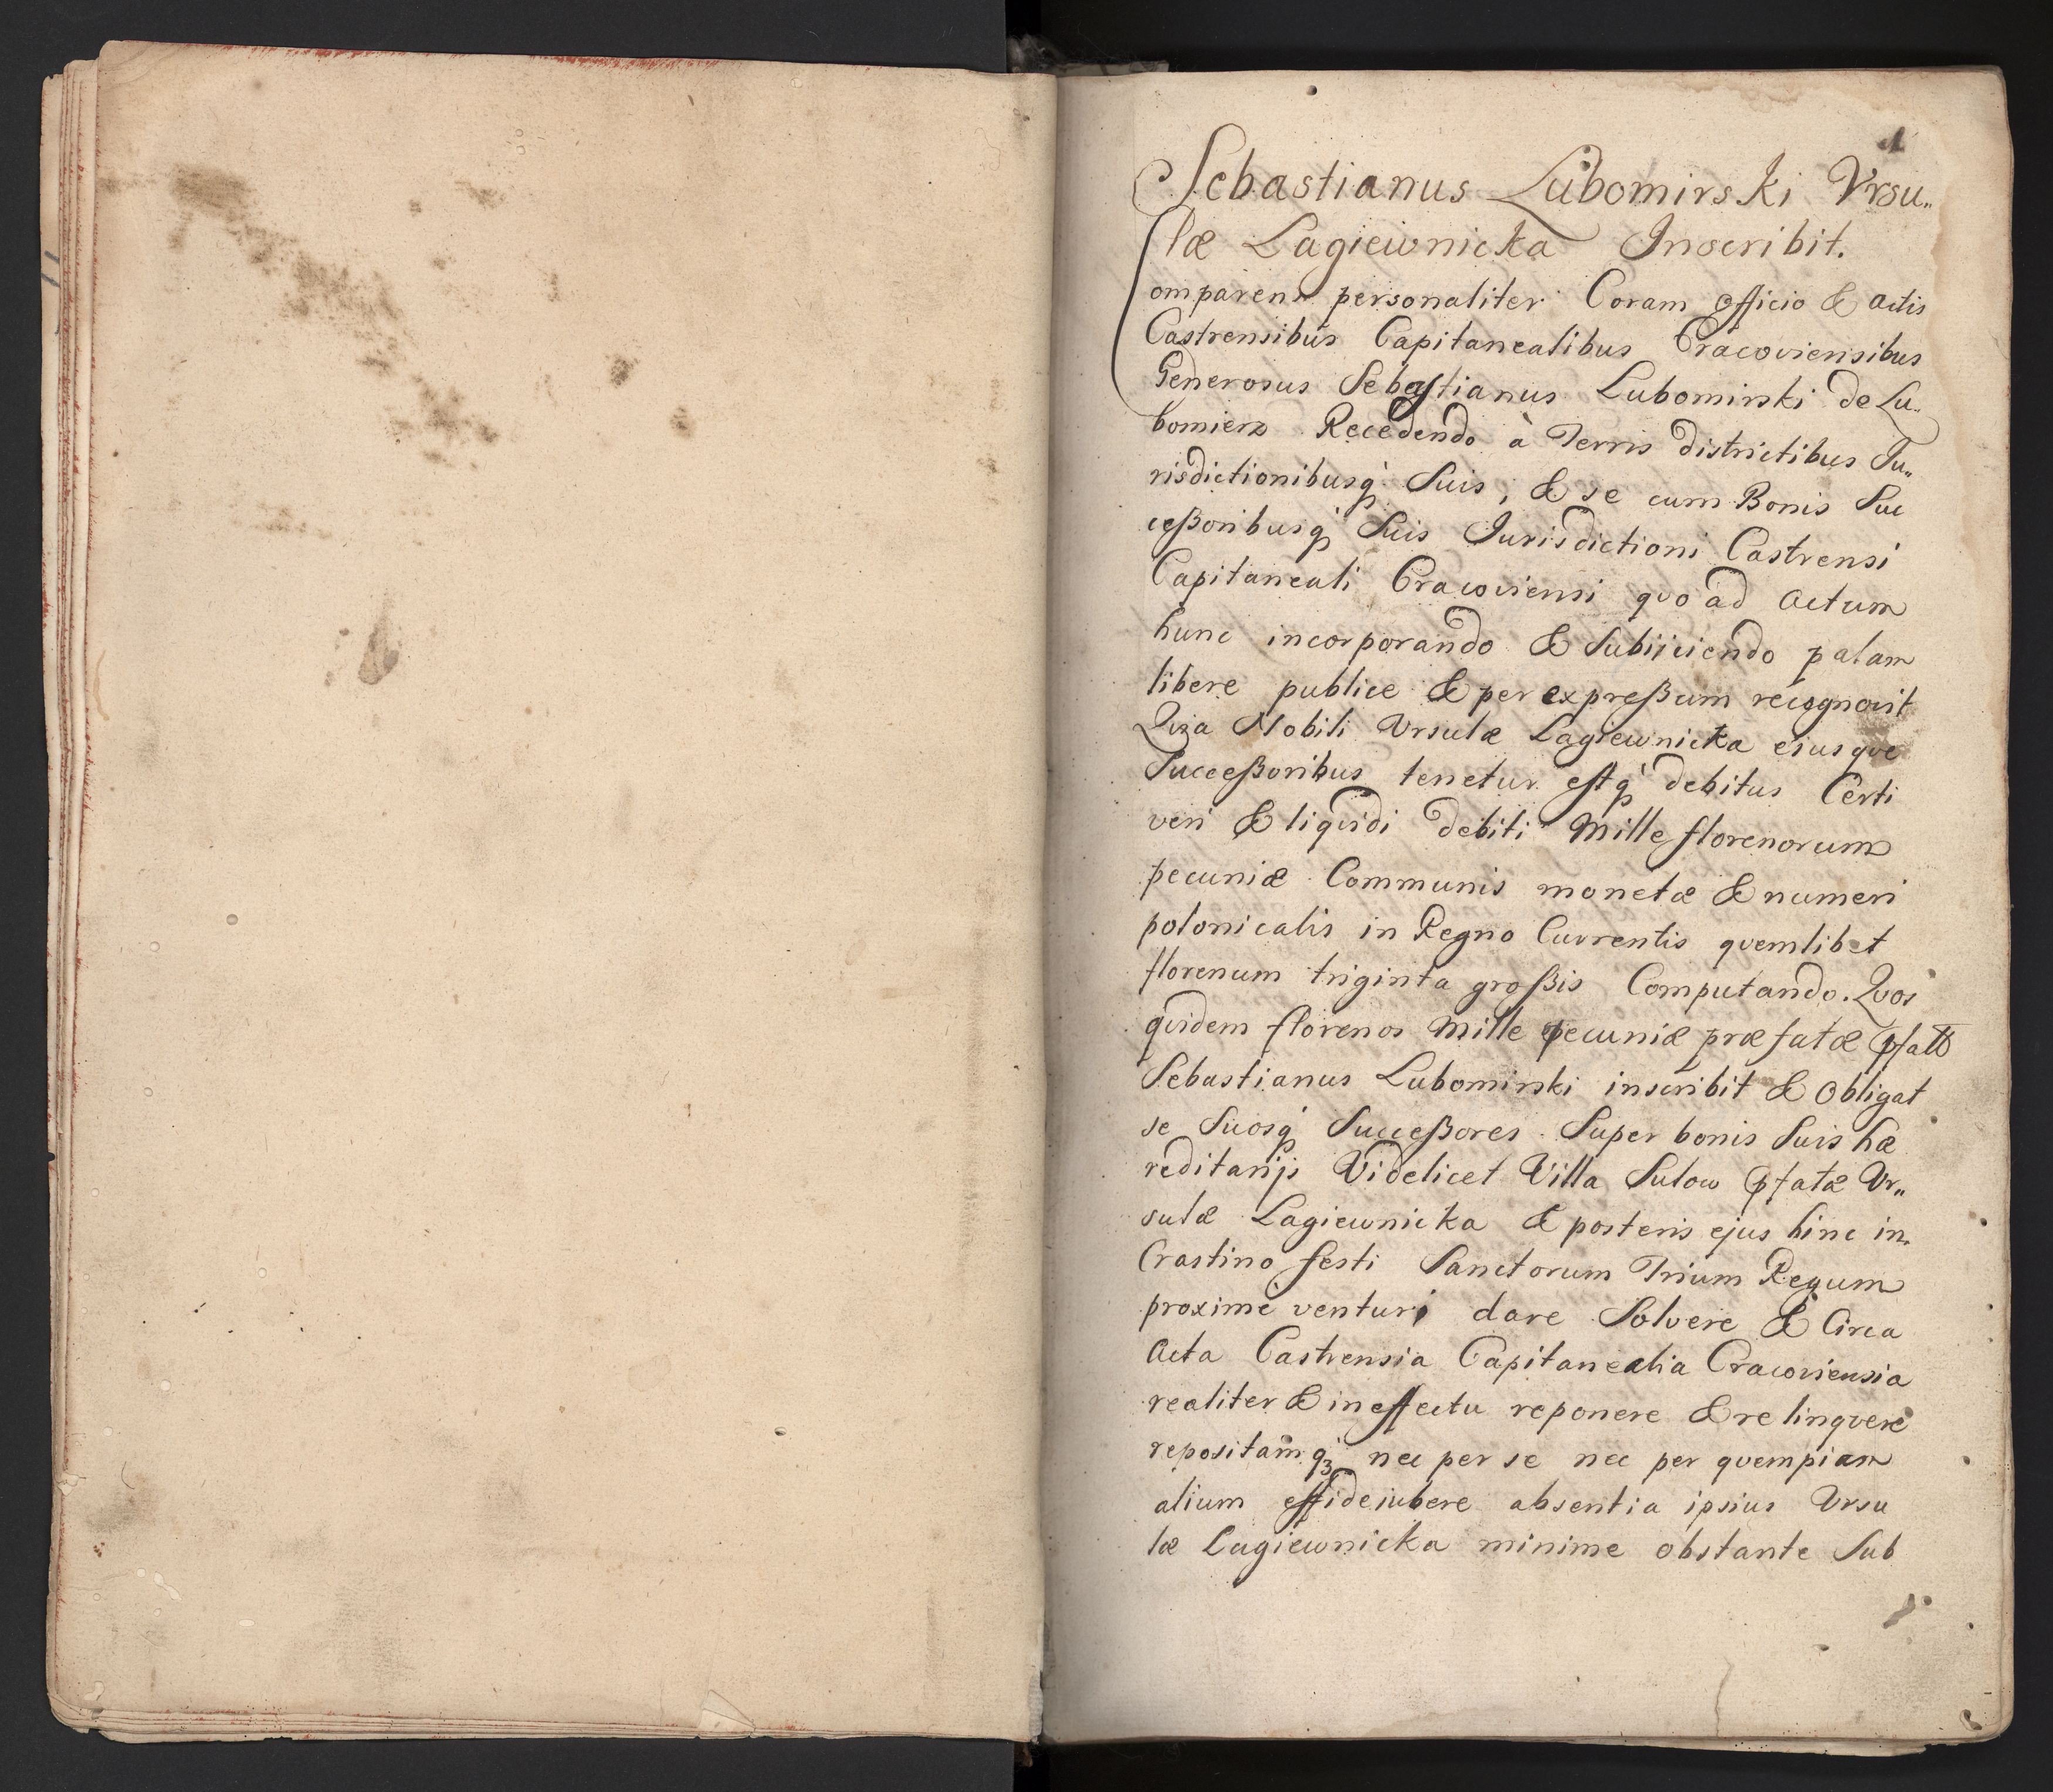 1
Sebastianus Lubomirski Vrsu„
læ Lagiewnicka Inscribit.
Comparens personaliter Coram officio & actis
Castrensibus Capitanealibus Cracoviensibus
Generosus Sebastianus Lubomirski de Lu„
bomierz Recedendo à Terris districtibus Ju„
risdictionibusq́ Suis, & se cum Bonis Suc
ceßoribusq́ Suis Jurisdictioni Castrensi
Capitaneali Cracoviensi qvo ad actum
hunc incorporando & Subiiciendo palam
libere publice & per expreßum recognovit
Qvia Nobili Vrsulæ Lagiewnicka eiusqve
Succeßoribus tenetur estq́ debitus Certi
veri & liqvidi debiti Mille florenorum
pecuniæ Communis monetæ & numeri
polonicalis in Regno Currentis qvemlibet
florenum triginta großis Computando. Qvos
qvidem florenos Mille pecuniæ præfatæ
Sebastianus Lubomirski inscribit & obligat
se Suosq́ Succeßores Super bonis Suis hæ
reditarijs Videlicet Villa Sulow pfatæ Vr„
sulæ Lagiewnicka & posteris ejus hinc in
Crastino festi Sanctorum Trium Regum
proximè venturi dare Solvere & Circa
Acta Castrensia Capitanealia Cracoviensia
realiter & in effectu reponere & relinqvere
repositamq́3 nec per se nec per qvempiam
alium effideiubere absentia ipsius Vrsu
læ Lagiewnicka minime obstante Sub